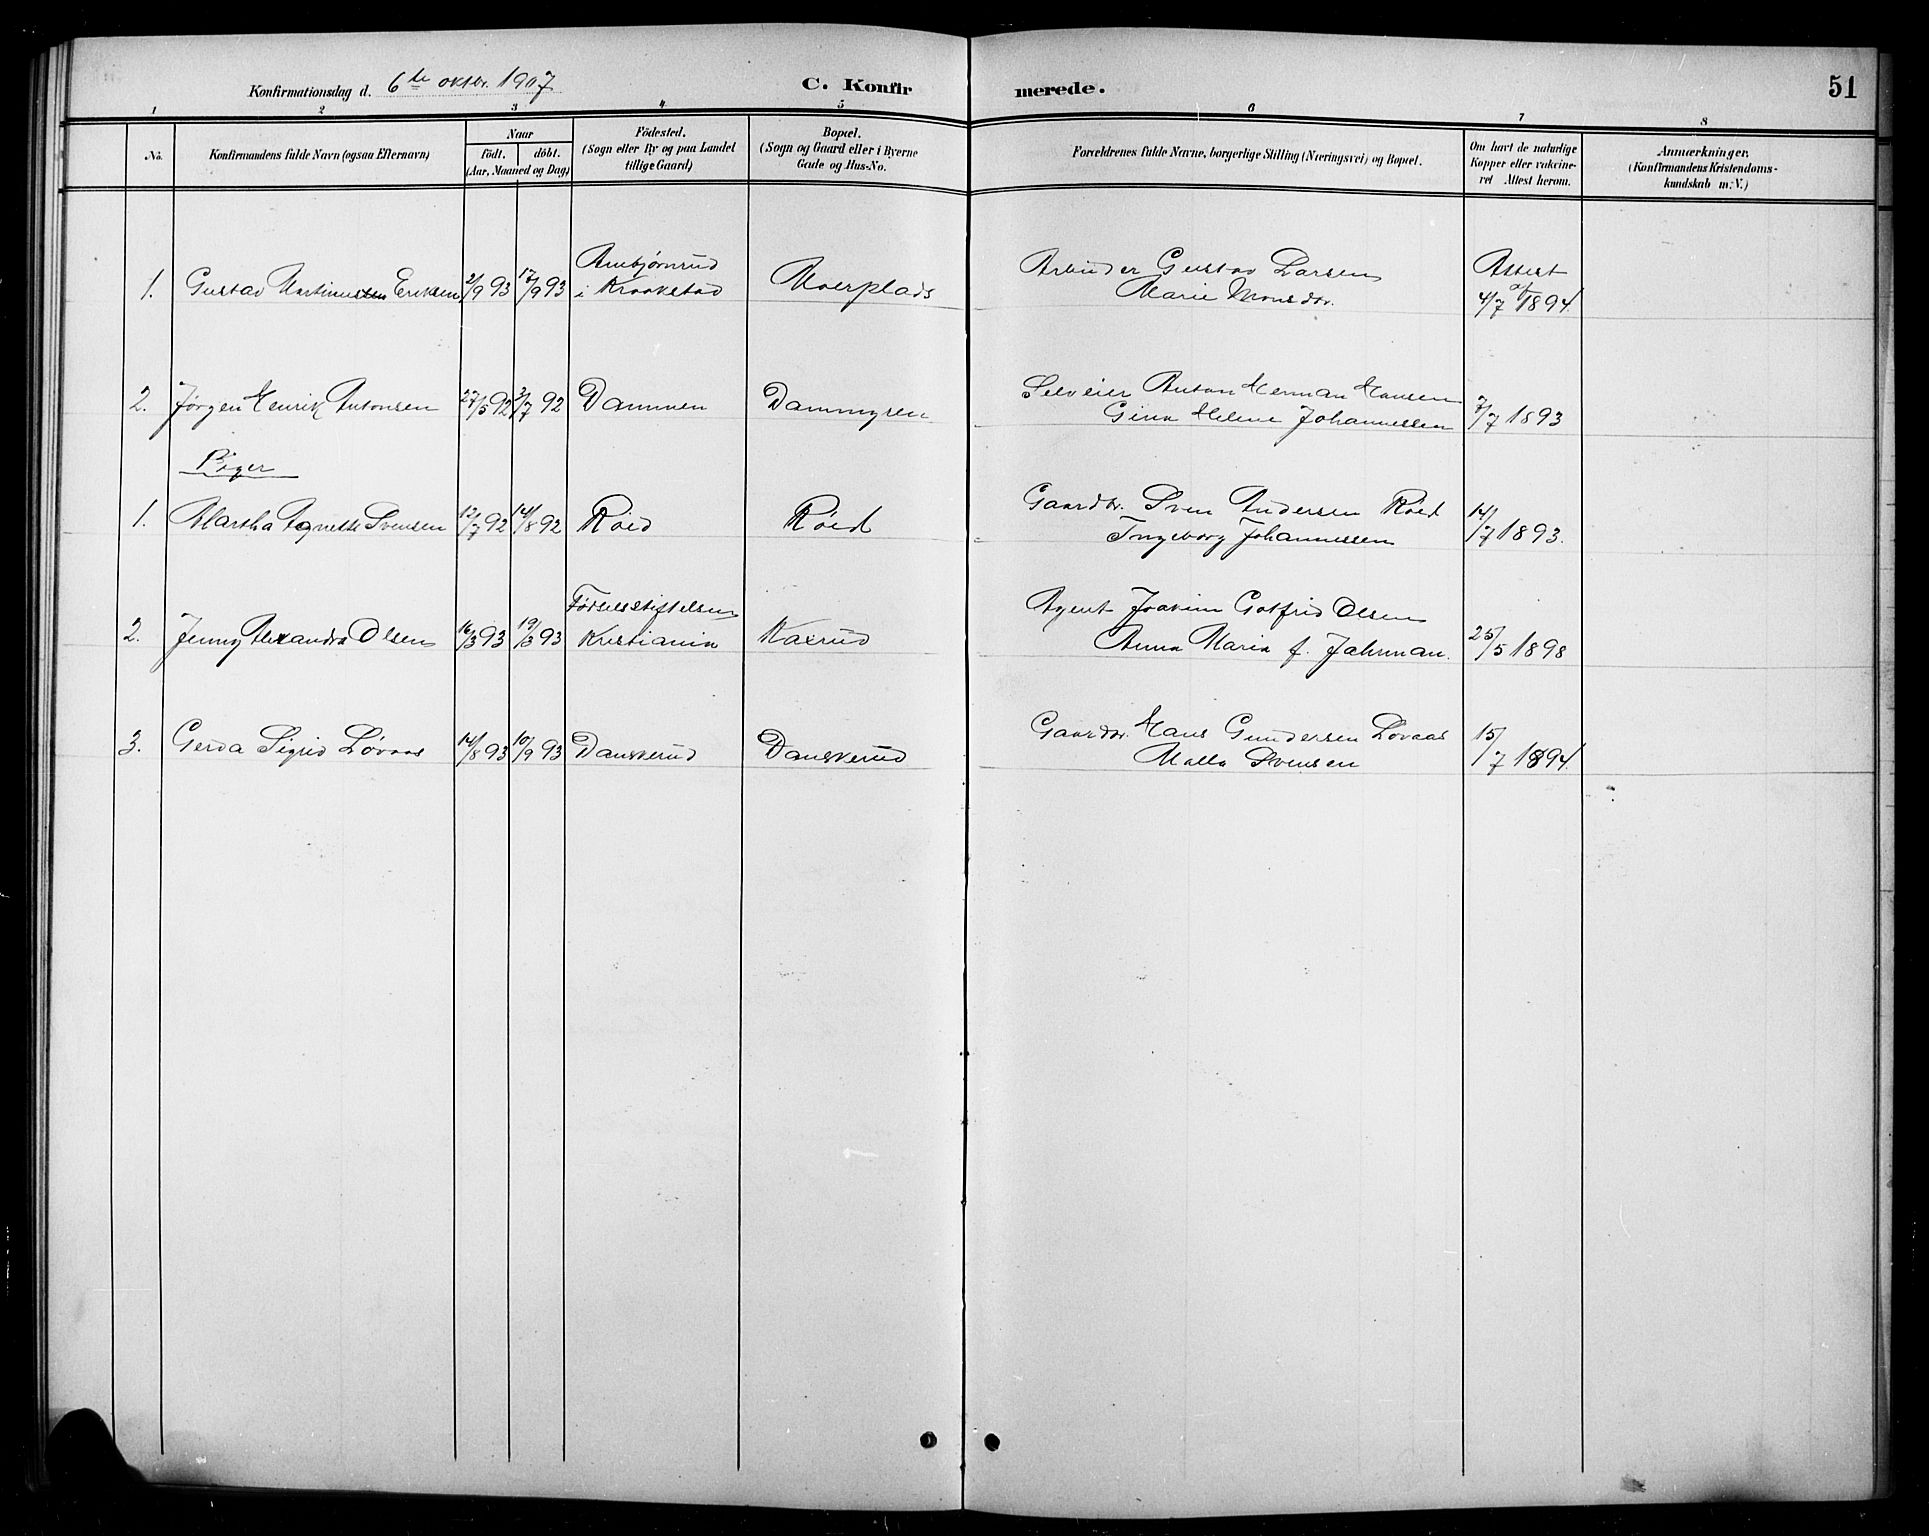 Konfirmationsdag d. 6te oktbr. 1907
C. Konfirmerede.
51
1 2 3 4 5 6 7 8
No.
Konfirmandens fulde Navn (ogsaa Efternavn)
Naar
födt. döbt.
(Aar, Maaned og Dag)
Födested.
(Sogn eller By og paa Landet
tillige Gaard)
Bopæl.
(Sogn og Gaard eller i Byerne
Gade og Hus-No.
Forældrenes fulde Navne, borgerlige Stilling (Næringsvei) og Bopæl.
Om havt de naturlige
Kopper eller vakcine-
ret Attest herom.
Anmærkninger.
(Konfirmandens Kristendoms-
kundskab m: V.)
1. Gustav Martinus Eriksen 2/9 93 17/9 93
Ambjørnrud
i Kraakstad
Moerplads
Arbeider Gustav Larsen
Marie Monsdtr.
Attest
af
4/7 1894.
2. Jørgen Henrik Antonsen 27/5 92 3/7 92 Dammen Dammyren
Selveier Anton Herman Hansen
Gina Helene Johannessen
7/7 1893
Piger
1. Martha Agnethe Svensen 12/7 92 14/8 92 Røed Røed
Gaardbr. Sven Andersen Røed
Ingeborg Johannessen
14/7 1893.
2. Jenny Alexandra Olsen 16/3 93 19/3 93
Fødselsstiftelsen
Kristiania
Kaxrud
Agent Joakim Gotfrid Olsen
Anna Maria f. Jahrman.
25/5 1898
3. Gerda Sigrid Løvaas 14/8 93 10/9 93 Danskerud Danskerud
Gaardbr. Hans Gundersen Løvaas
Malla Svensen
15/7 1894.